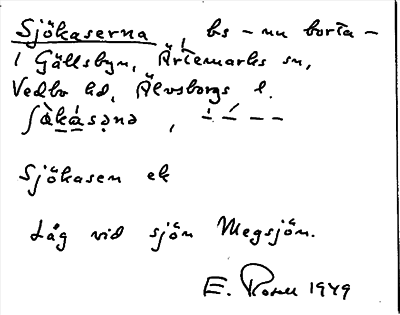 Sjökaserna, bs – nu borta –
i Gällsbyn, Ärtemarks sn,
Vedbo hd, Älvsborgs l.
Sjökasen ek
Låg vid sjön Megsjön.
E. Rosell 1949